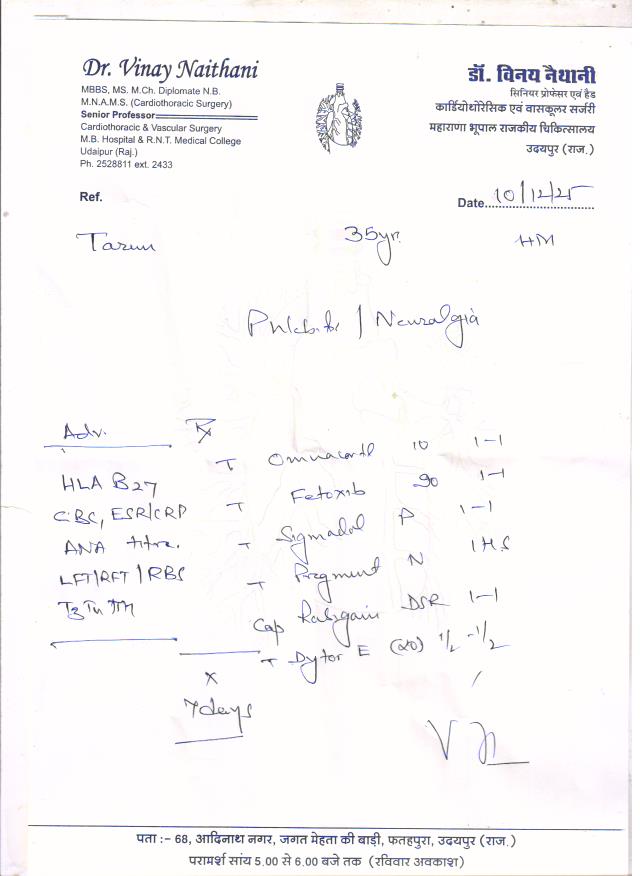 Dr. Vinay Naithani
MBBS, MS. M.Ch. Diplomate N.B.
M.N.A.M.S. (Cardiothoracic Surgery)
Senior Professor
Cardiothoracic & Vascular Surgery
M.B. Hospital & R.N.T. Medical College
Udaipur (Raj.)
Ph. 2528811 ext. 2433
डॉ. विनय नैथानी
सिनियर प्रोफेसर एवं हैड
कार्डियोथोरेसिक एवं वासकूलर सर्जरी
महाराणा भूपाल राजकीय चिकित्सालय
उदयपुर (राज.)
Ref.
Date 10/12/25
Tarun 35yr.
/ Neuralgia
Adv. Rx
T Omnacortil 10 1-1
HLA B27
T Fetoxib 90 1-1
CBC, ESR/CRP
T Sigmadol P 1-1
ANA titre.
T N 1 H.S
LFT/RFT/RBS
Cap DSR 1-1
T Dytor E (20) 1/2 - 1/2
x
7 days
पता :- 68, आदिनाथ नगर, जगत मेहता की बाड़ी, फतहपुरा, उदयपुर (राज.)
परामर्श सांय 5.00 से 6.00 बजे तक (रविवार अवकाश)